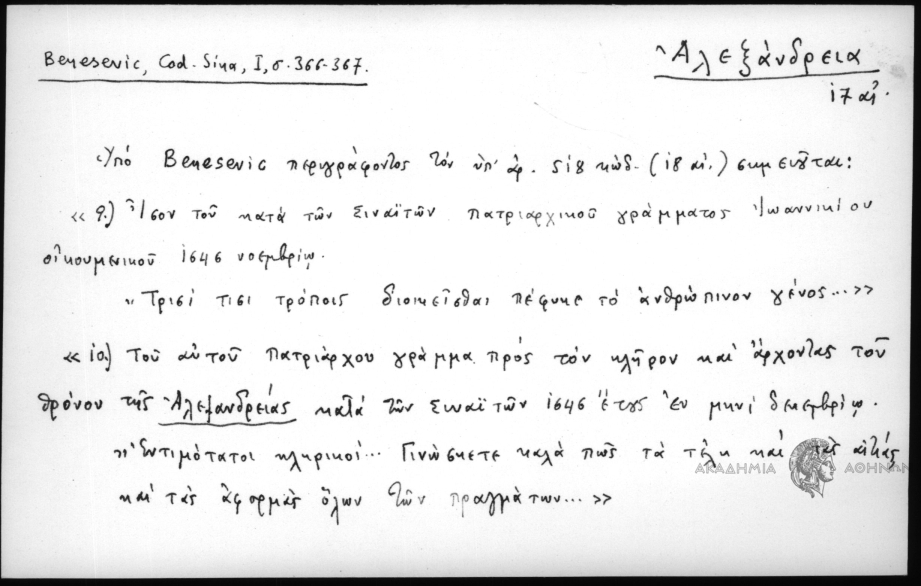 Benesevic, Cod. Sina, I, σ. 366-367.
Ἀλεξάνδρεια
17 αἰ.
Ὑπό Benesevic περιγράφοντος τόν ὑπ' ἀρ. 518 κώδ. (18 αἰ.) σημειοῦται:
«9.) Ἴσον τοῦ κατά τῶν Σιναϊτῶν πατριαρχικοῦ γράμματος Ἰωαννικίου
οἰκουμενικοῦ 1646 νοεμβρίῳ.
"Τρισί τισι τρόποις διοικεῖσθαι πέφυκε τό ἀνθρώπινον γένος...»
«10.) Τοῦ αὐτοῦ πατριάρχου γράμμα πρός τόν κλῆρον καί ἄρχοντας τοῦ
θρόνου τῆς Ἀλεξανδρείας κατά τῶν Σιναϊτῶν 1646 ἔτους ἐν μηνί δεκεμβρίῳ.
"Ἐντιμότατοι κληρικοί... Γινώσκετε καλά πῶς τά τέλη καί τάς αἰτίας
καί τάς ἀφορμάς ὅλων τῶν πραγμάτων...»
ΑΚΑΔΗΜΙΑ ΑΘΗΝΩΝ